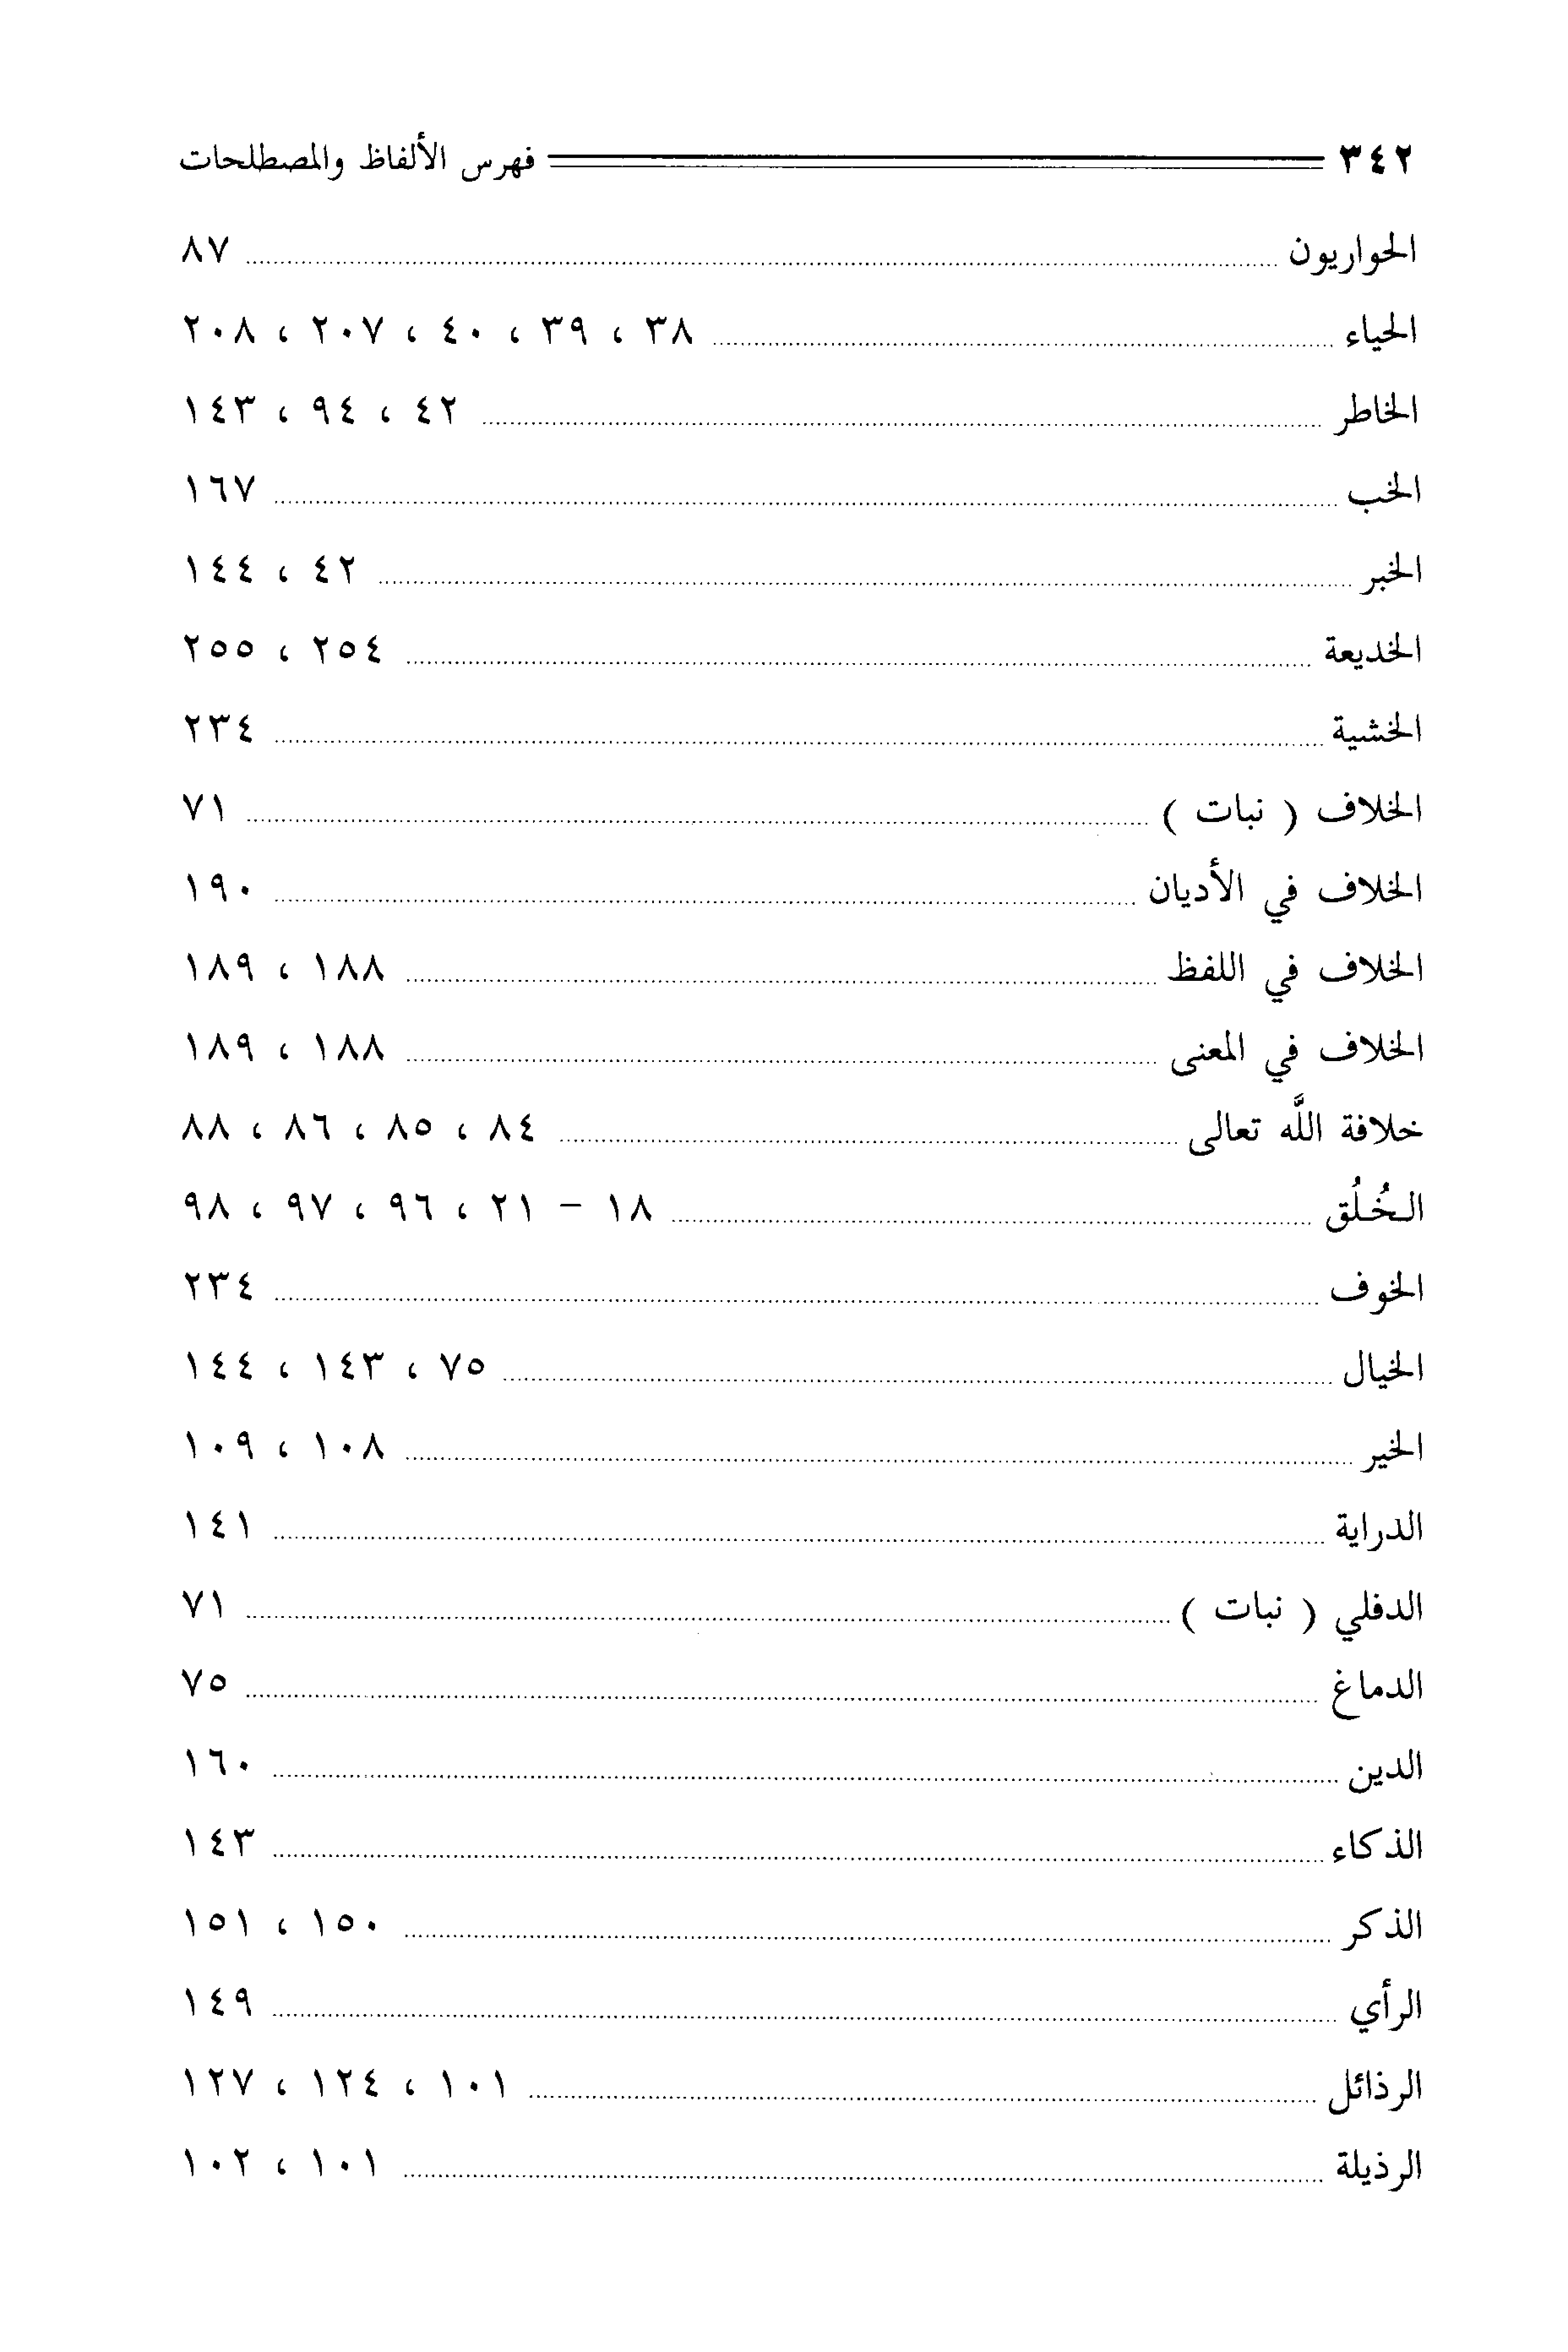 ٣٤٢ فهرس الألفاظ والمصطلحات
الحواريون ٨٧
الحياء ٣٨ ، ٣٩ ، ٤٠ ، ٢٠٧ ، ٢٠٨
الخاطر ٤٢ ، ٩٤ ، ١٤٣
الخب ١٦٧
الخبر ٤٢ ، ١٤٤
الخديعة ٢٥٤ ، ٢٥٥
الخشية ٢٣٤
الخلاف ( نبات ) ٧١
الخلاف في الأديان ١٩٠
الخلاف في اللفظ ١٨٨ ، ١٨٩
الخلاف في المعنى ١٨٨ ، ١٨٩
خلافة اللَّه تعالى ٨٤ ، ٨٥ ، ٨٦ ، ٨٨
الخُلُق ١٨ - ٢١ ، ٩٦ ، ٩٧ ، ٩٨
الخوف ٢٣٤
الخيال ٧٥ ، ١٤٣ ، ١٤٤
الخير ١٠٨ ، ١٠٩
الدراية ١٤١
الدفلي ( نبات ) ٧١
الدماغ ٧٥
الدين ١٦٠
الذكاء ١٤٣
الذكر ١٥٠ ، ١٥١
الرأي ١٤٩
الرذائل ١٠١ ، ١٢٤ ، ١٢٧
الرذيلة ١٠١ ، ١٠٢